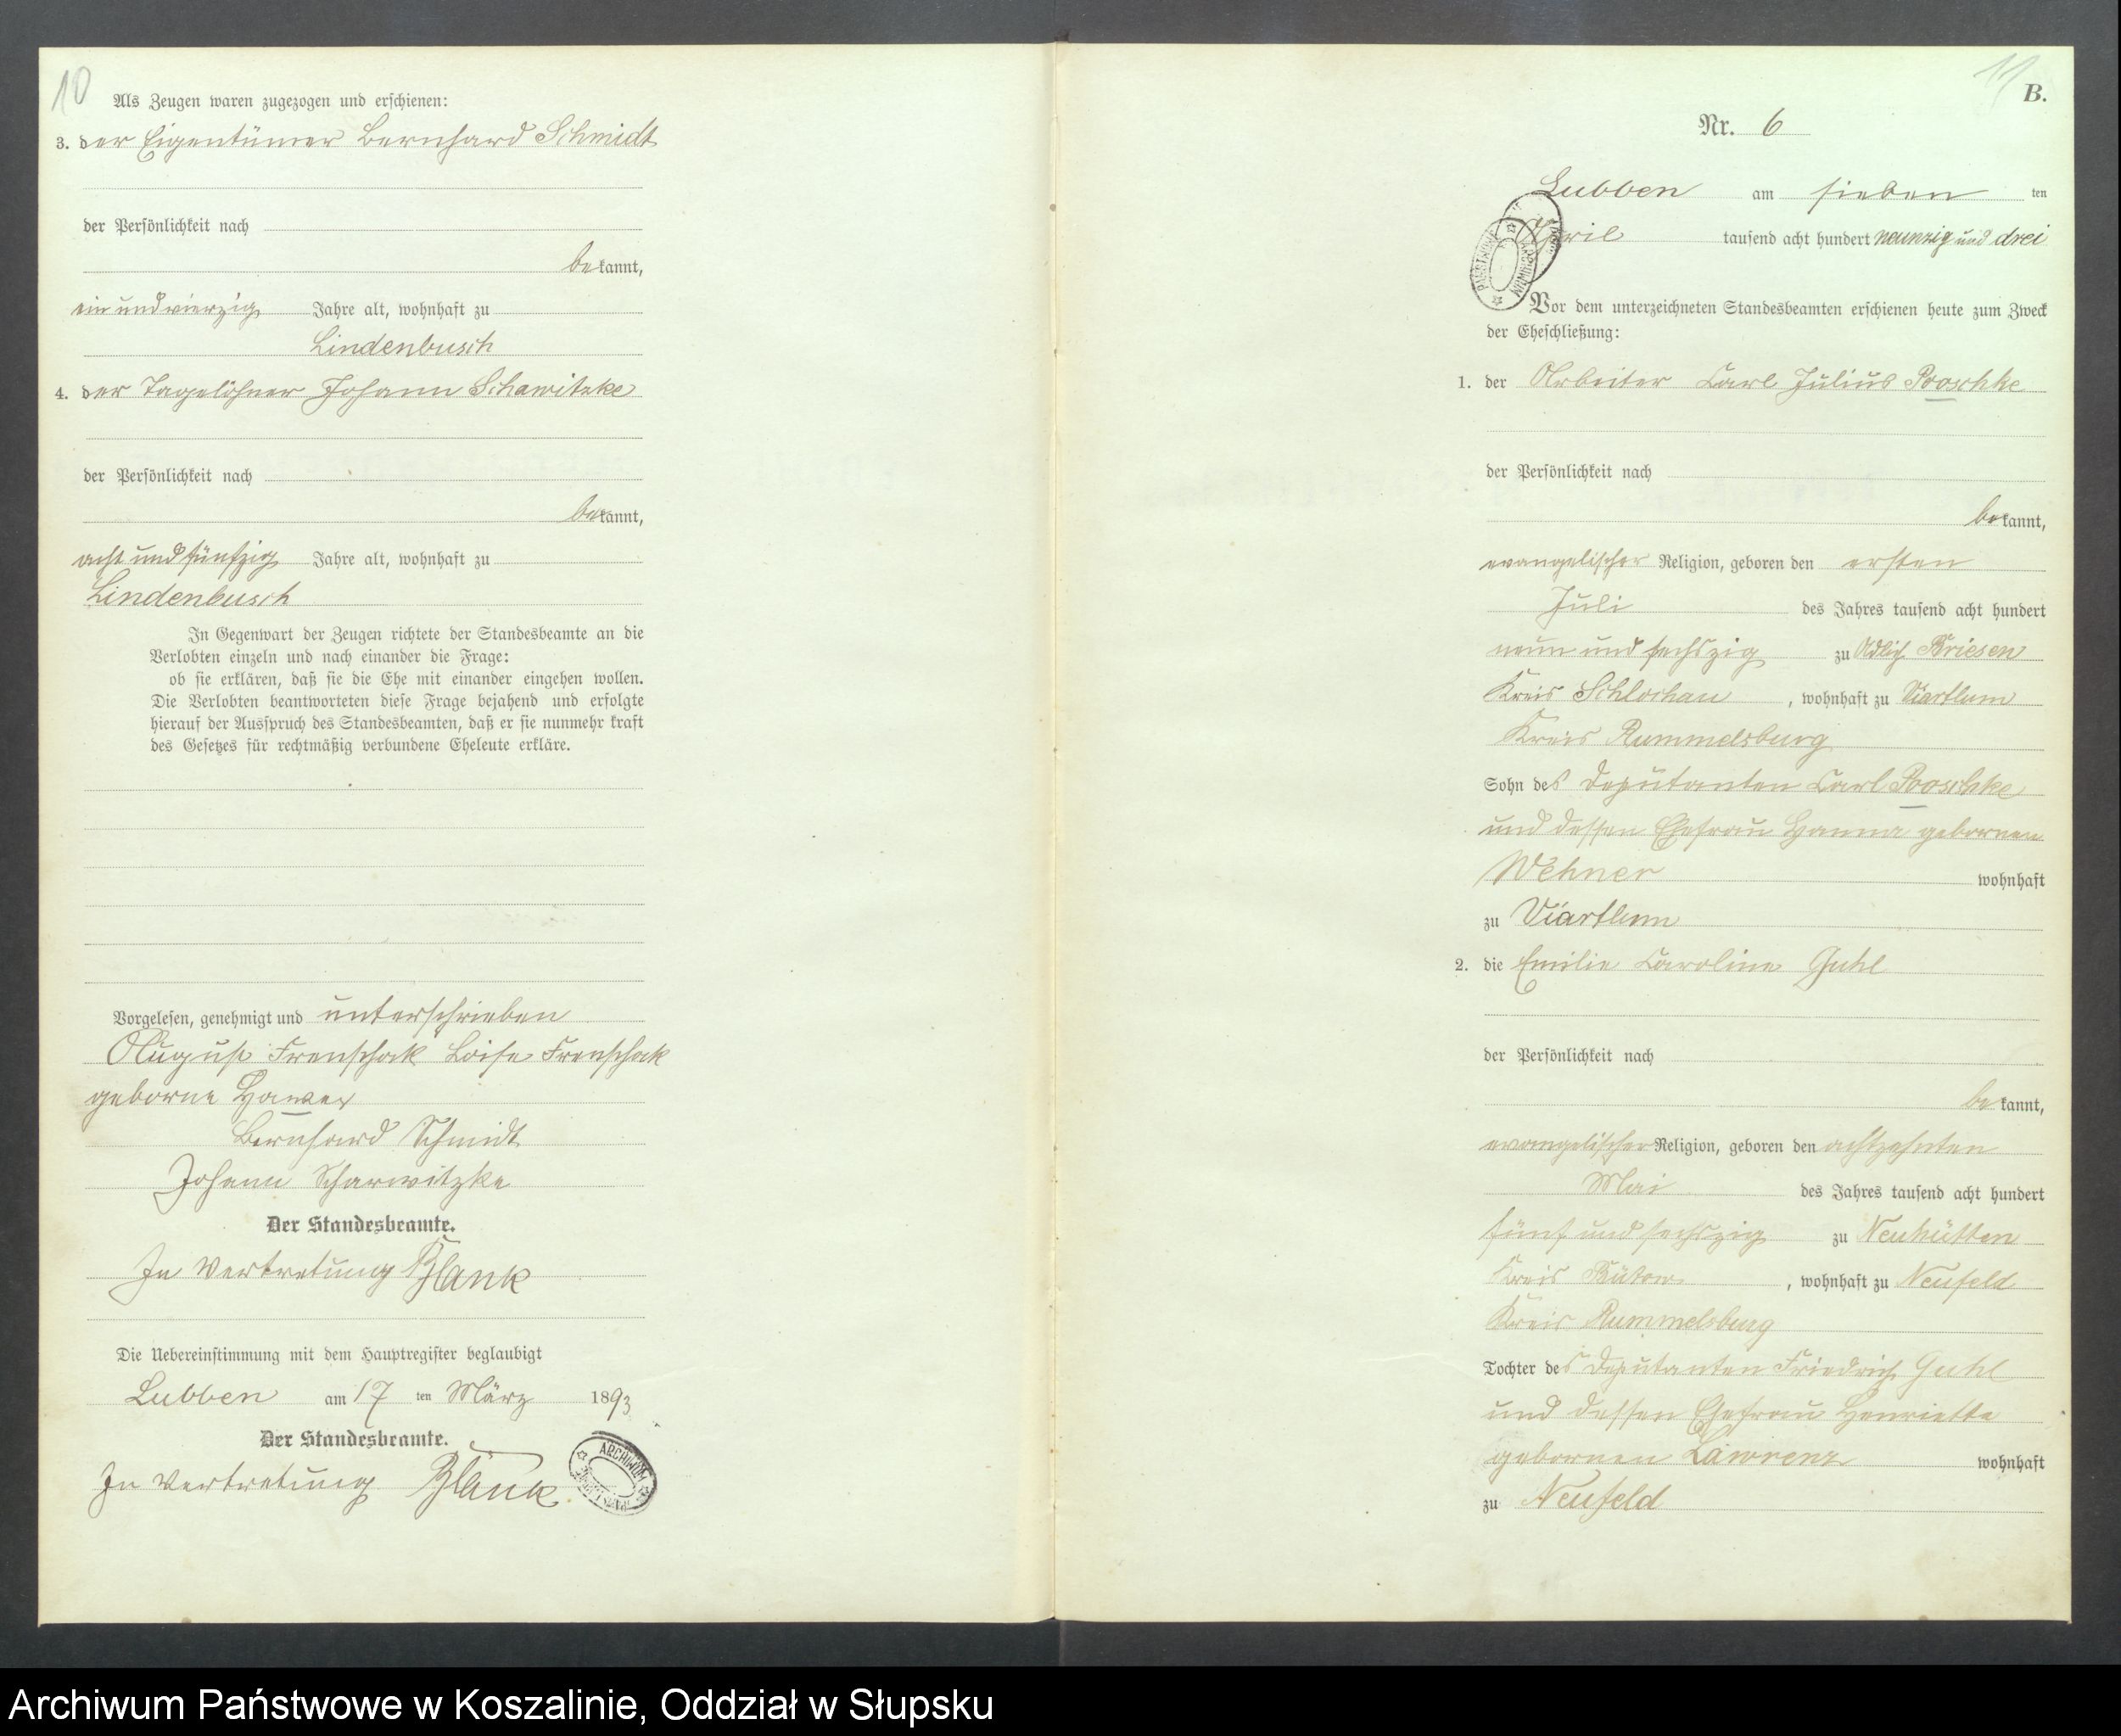 10
Als Zeugen waren zugezogen und erschienen:
3. der Eigentümer Bernhard Schmidt
der Persönlichkeit nach
bekannt,
ein und vierzig Jahre alt, wohnhaft zu
Lindenbusch
4. der Tagelöhner Johann Schawitzke
der Persönlichkeit nach
bekannt,
acht und fünfzig Jahre alt, wohnhaft zu
Lindenbusch
In Gegenwart der Zeugen richtete der Standesbeamte an die
Verlobten einzeln und nach einander die Frage:
ob sie erklären, daß sie die Ehe mit einander eingehen wollen.
Die Verlobten beantworteten diese Frage bejahend und erfolgte
hierauf der Ausspruch des Standesbeamten, daß er sie nunmehr kraft
des Gesetzes für rechtmäßig verbundene Eheleute erkläre.
Vorgelesen, genehmigt und unterschrieben
August Frenschak Loise Frenschak
geborne
Bernhard Schmidt
Johann Scharwitzke
Der Standesbeamte.
In Vertretung Blank
Die Uebereinstimmung mit dem Hauptregister beglaubigt
Lubben am 17 ten März 1893
Der Standesbeamte.
In Vertretung Blank
ARCHIWUM
11
B.
Nr. 6
Lubben am sieben ten
April tausend acht hundert neunzig und drei
Vor dem unterzeichneten Standesbeamten erschienen heute zum Zweck
der Eheschließung:
1. der Arbeiter Carl Julius Pooschke
der Persönlichkeit nach
bekannt,
evangelischer Religion, geboren den ersten
Juli des Jahres tausend acht hundert
neun und sechszig zu Adlig Briesen
Kreis Schlochau, wohnhaft zu Viartlum
Kreis Rummelsburg
Sohn des Deputanten Carl Pooschke
und dessen Ehefrau Hanna gebornen
Wehner wohnhaft
zu Viartlum
2. die Emilie Caroline Guhl
der Persönlichkeit nach
bekannt,
evangelischer Religion, geboren den achtzehnten
Mai des Jahres tausend acht hundert
fünf und sechszig zu Neuhütten
Kreis Bütow, wohnhaft zu Neufeld
Kreis Rummelsburg
Tochter des Deputanten Friedrich Guhl
und dessen Ehefrau Henriette
gebornen Lawrenz wohnhaft
zu Neufeld
Archiwum Państwowe w Koszalinie, Oddział w Słupsku